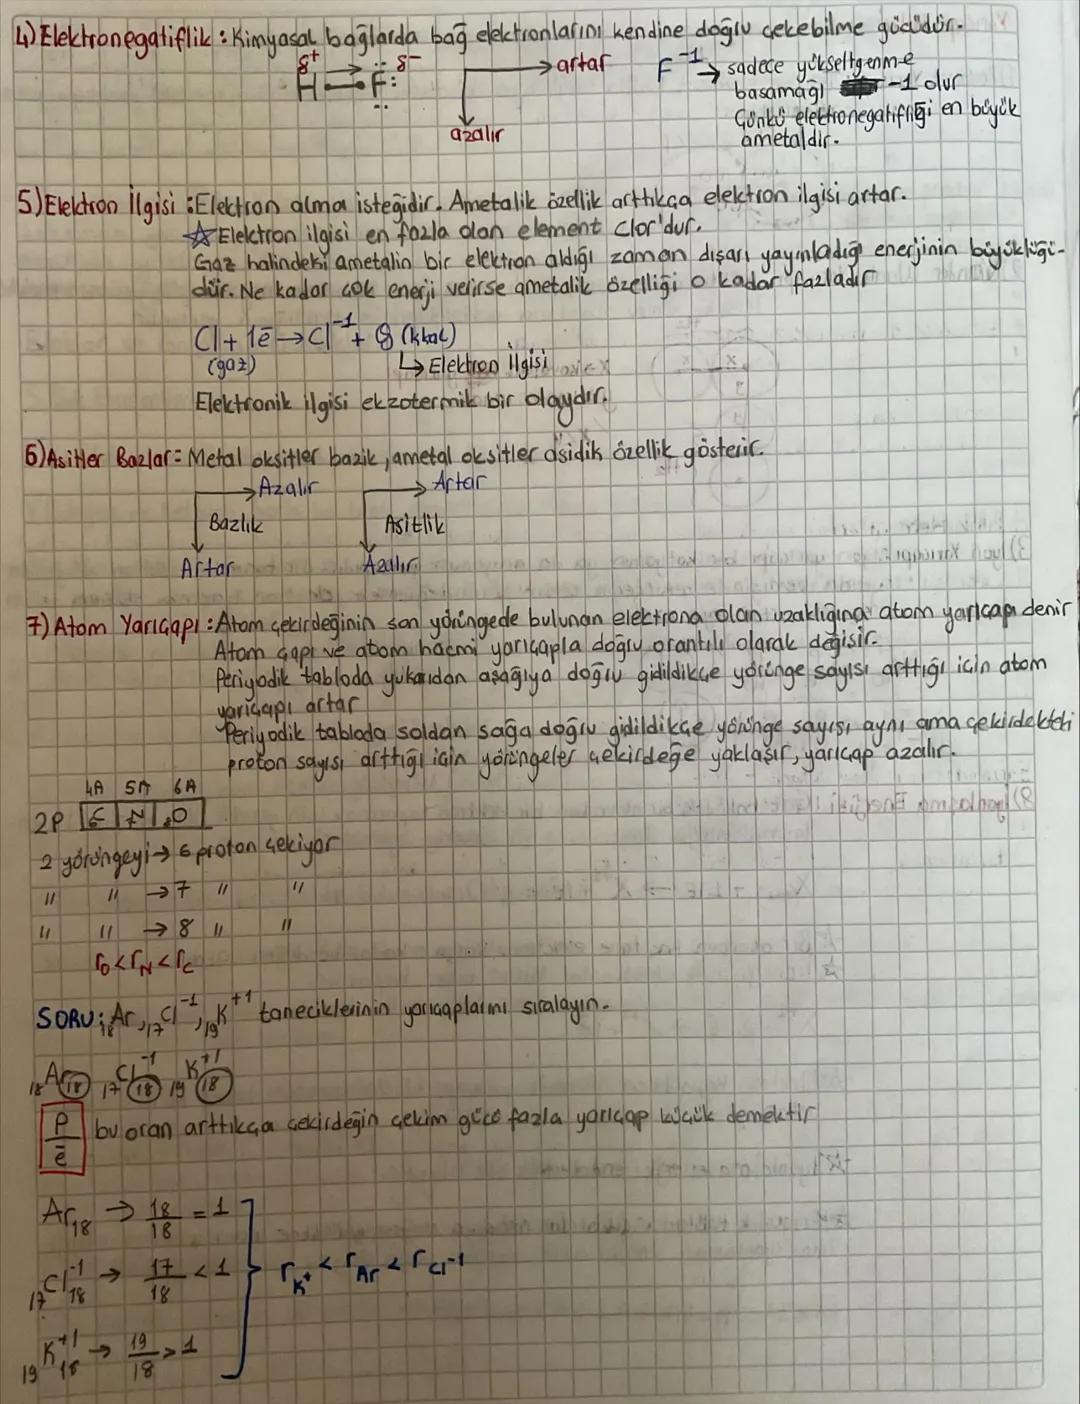 4) Elektronegatiflik : Kimyasal bağlarda bağ elektronlarını kendine doğru çekebilme gücüdür.
δ+ δ-
H F
artar
azalır
F-1 → sadece yükseltgenme
basamağı -1 olur
Çünkü elektronegatifliği en büyük
ametaldir.
5) Elektron İlgisi : Elektron alma isteğidir. Ametalik özellik arttıkça elektron ilgisi artar.
☆ Elektron ilgisi en fazla olan element Clor'dur.
Gaz halindeki ametalin bir elektron aldığı zaman dışarı yayınladığı enerjinin büyüklüğü-
dür. Ne kadar çok enerji verirse ametalik özelliği o kadar fazladır
Cl + 1ē → Cl-1 + Q (kkal)
(gaz) ↳ Elektron İlgisi
Elektronik ilgisi ekzotermik bir olaydır.
6) Asitler Bazlar = Metal oksitler bazik, ametal oksitler asidik özellik gösterir.
→ Azalır → Artar
Bazlık Asitlik
Artar Azalır
7) Atom Yarıçapı : Atom çekirdeğinin son yörüngede bulunan elektrona olan uzaklığına atom yarıçapı denir
Atom çapı ve atom hacmi yarıçapla doğru orantılı olarak değişir.
Periyodik tabloda yukarıdan aşağıya doğru gidildikçe yörünge sayısı arttığı için atom
yarıçapı artar
Periyodik tabloda soldan sağa doğru gidildikçe yörünge sayısı aynı ama çekirdekteki
proton sayısı arttığı için yörüngeler çekirdeğe yaklaşır, yarıçap azalır.
4A 5A 6A
2P C N O
2 yörüngeyi → 6 proton çekiyor
" " → 7 " "
" " → 8 " "
rO < rN < rC
SORU: 18Ar, 17Cl-1, 19K+1 taneciklerinin yarıçaplarını sıralayın.
18Ar18 17Cl-1 18 19K+1 18
P/ē bu oran arttıkça çekirdeğin çekim gücü fazla yarıçap küçük demektir
Ar18 → 18/18 = 1
17Cl-1 18 → 17/18 < 1
rK+ < rAr < rCl-1
19K+1 18 → 19/18 > 1